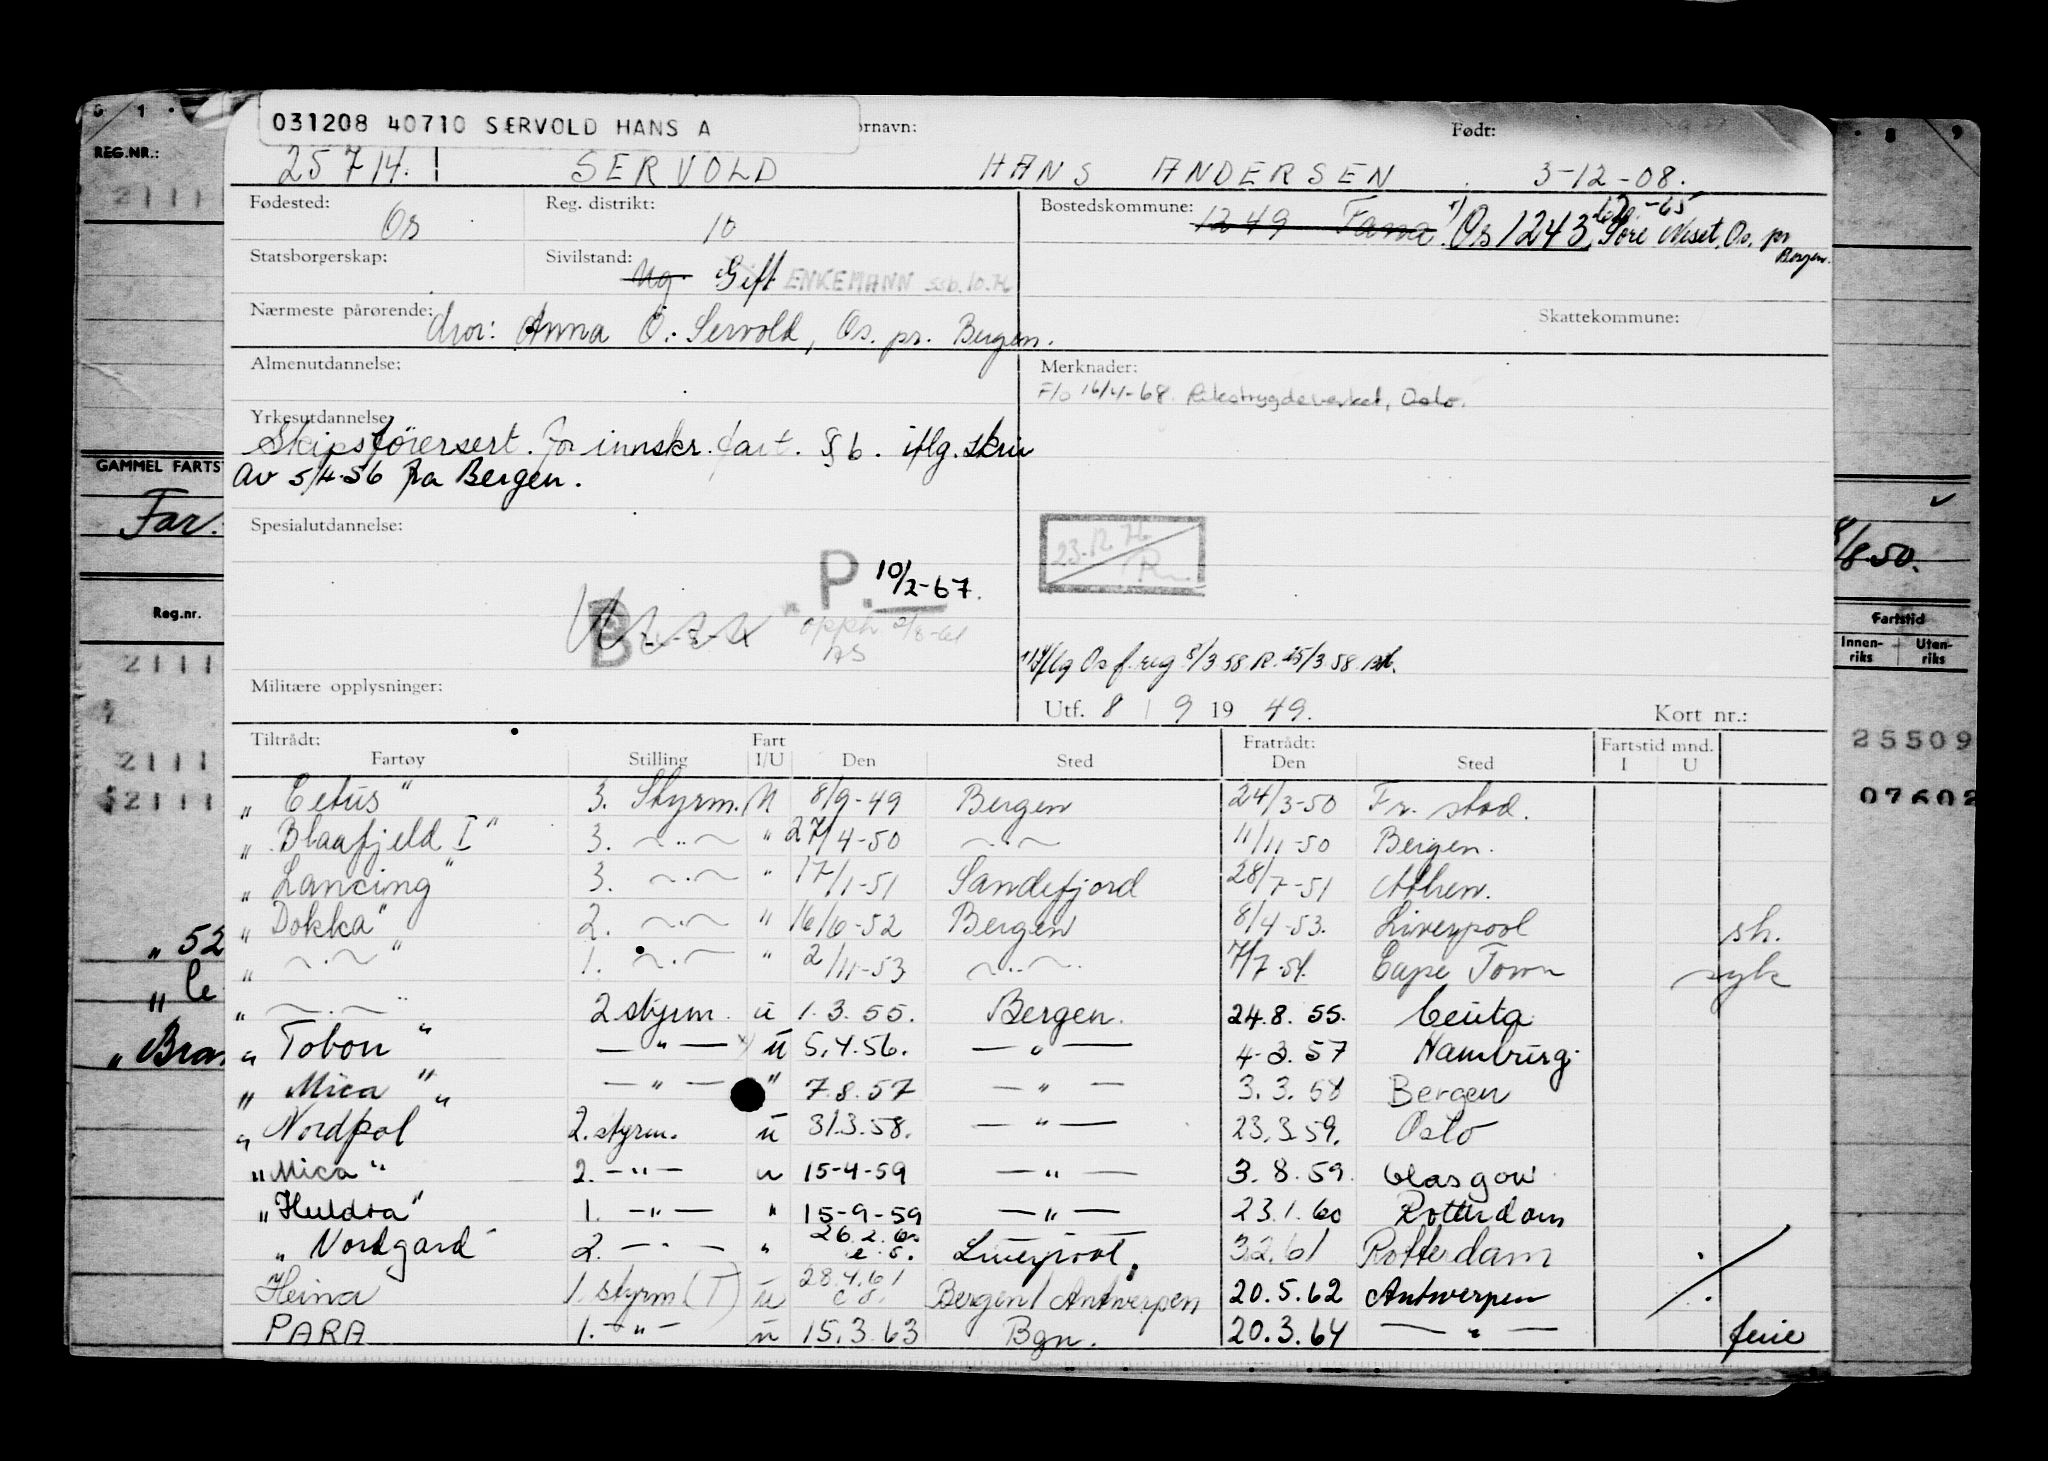 031208 40710 SERVOLD HANS A
ornavn: Født:
25714. SERVOLD HANS ANDERSEN 3-12-08.
REG.NR.:
Fødested: Os Reg. distrikt: 10 Bostedskommune: 1249 Fana Os 1243 Søre Neset, Os, pr Bergen.
Statsborgerskap: Sivilstand: Ug. Gift ENKEMANN SSB. 10.76
Nærmeste pårørende: Mor: Anna O. Servold, Os. pr. Bergen. Skattekommune:
Almenutdannelse: Merknader:
F/o 16/4-68. Rikstrygdeverket, Oslo.
Yrkesutdannelse:
Skipsførersert. for innskr. fart. § 6. iflg. skriv
av 5/4-56 fra Bergen.
GAMMEL FARTS
Far.
Spesialutdannelse:
23.12.76
8/8-50.
P. 10/2-67.
B
opph 2/8-61
AS
1) Iflg Os f.reg 8/3 58 R. 25/3 58
Militære opplysninger:
Utf. 8 / 9 19 49. Kort nr.:
Reg.nr. Fartstid
Innen-riks Uten-riks
25509
07602
Tiltrådt: Fart Fratrådt: Fartstid mnd.
Fartøy Stilling I/U Den Sted Den Sted I U
" Cetus " 3. Styrm. U 8/9-49 Bergen 24/3-50 Fr. stad.
" Blaafjeld I " 3. ~"~ " 27/4-50 ~"~ 11/11-50 Bergen.
" Lancing " 3. ~"~ " 17/1-51 Sandefjord 28/7-51 Athen.
" Dokka " 2. ~"~ " 16/6-52 Bergen 8/4-53. Liverpool sh.
" ~"~ " 1. ~"~ " 2/11-53 ~"~ 7/7-54. Cape Town syk
" ~"~ " 2 styrm. u 1.3.55. Bergen. 24.8.55. Ceuta
" Tobon " — " — u 5.4.56. — " — 4-3.57 Hamburg.
" Mica " — " — " 7.8.57 — " — 3.3.58 Bergen
" Nordpol " 2. styrm. u 31.3.58. — " — 23.3.59. Oslo
" Mica " 2. — " — u 15-4-59 — " — 3.8.59. Glasgow
" Huldra " 1. — " — " 15-9-59 — " — 23.1.60 Rotterdam
" Nordgard " 2. — " — " 26.2.60 e.o. Liverpool. 3.2.61 Rotterdam
Heina 1 styrm (T) u 28.4.61 e.o. Bergen/Antwerpen 20.5.62 Antwerpen
PARA 1. — " — u 15.3.63 Bgn. 20.3.64 — " — ferie
" 52
" Ce
" Bra